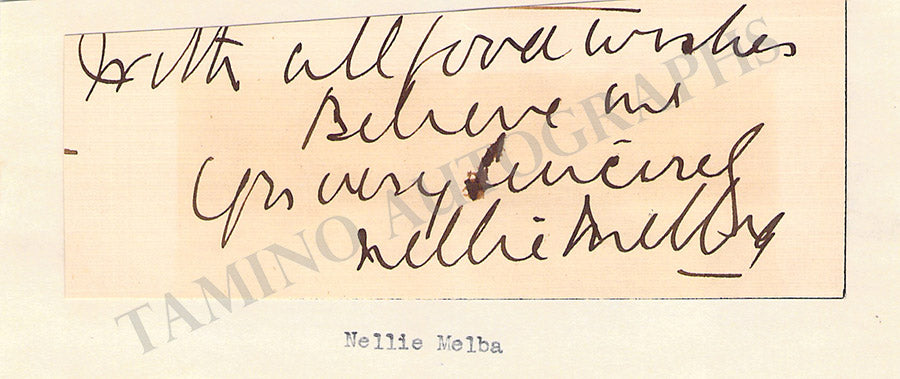 With all good wishes
Believe me
Yrs very sincerely
Nellie Melba
TAMINO AUTOGRAPHS
Nellie Melba